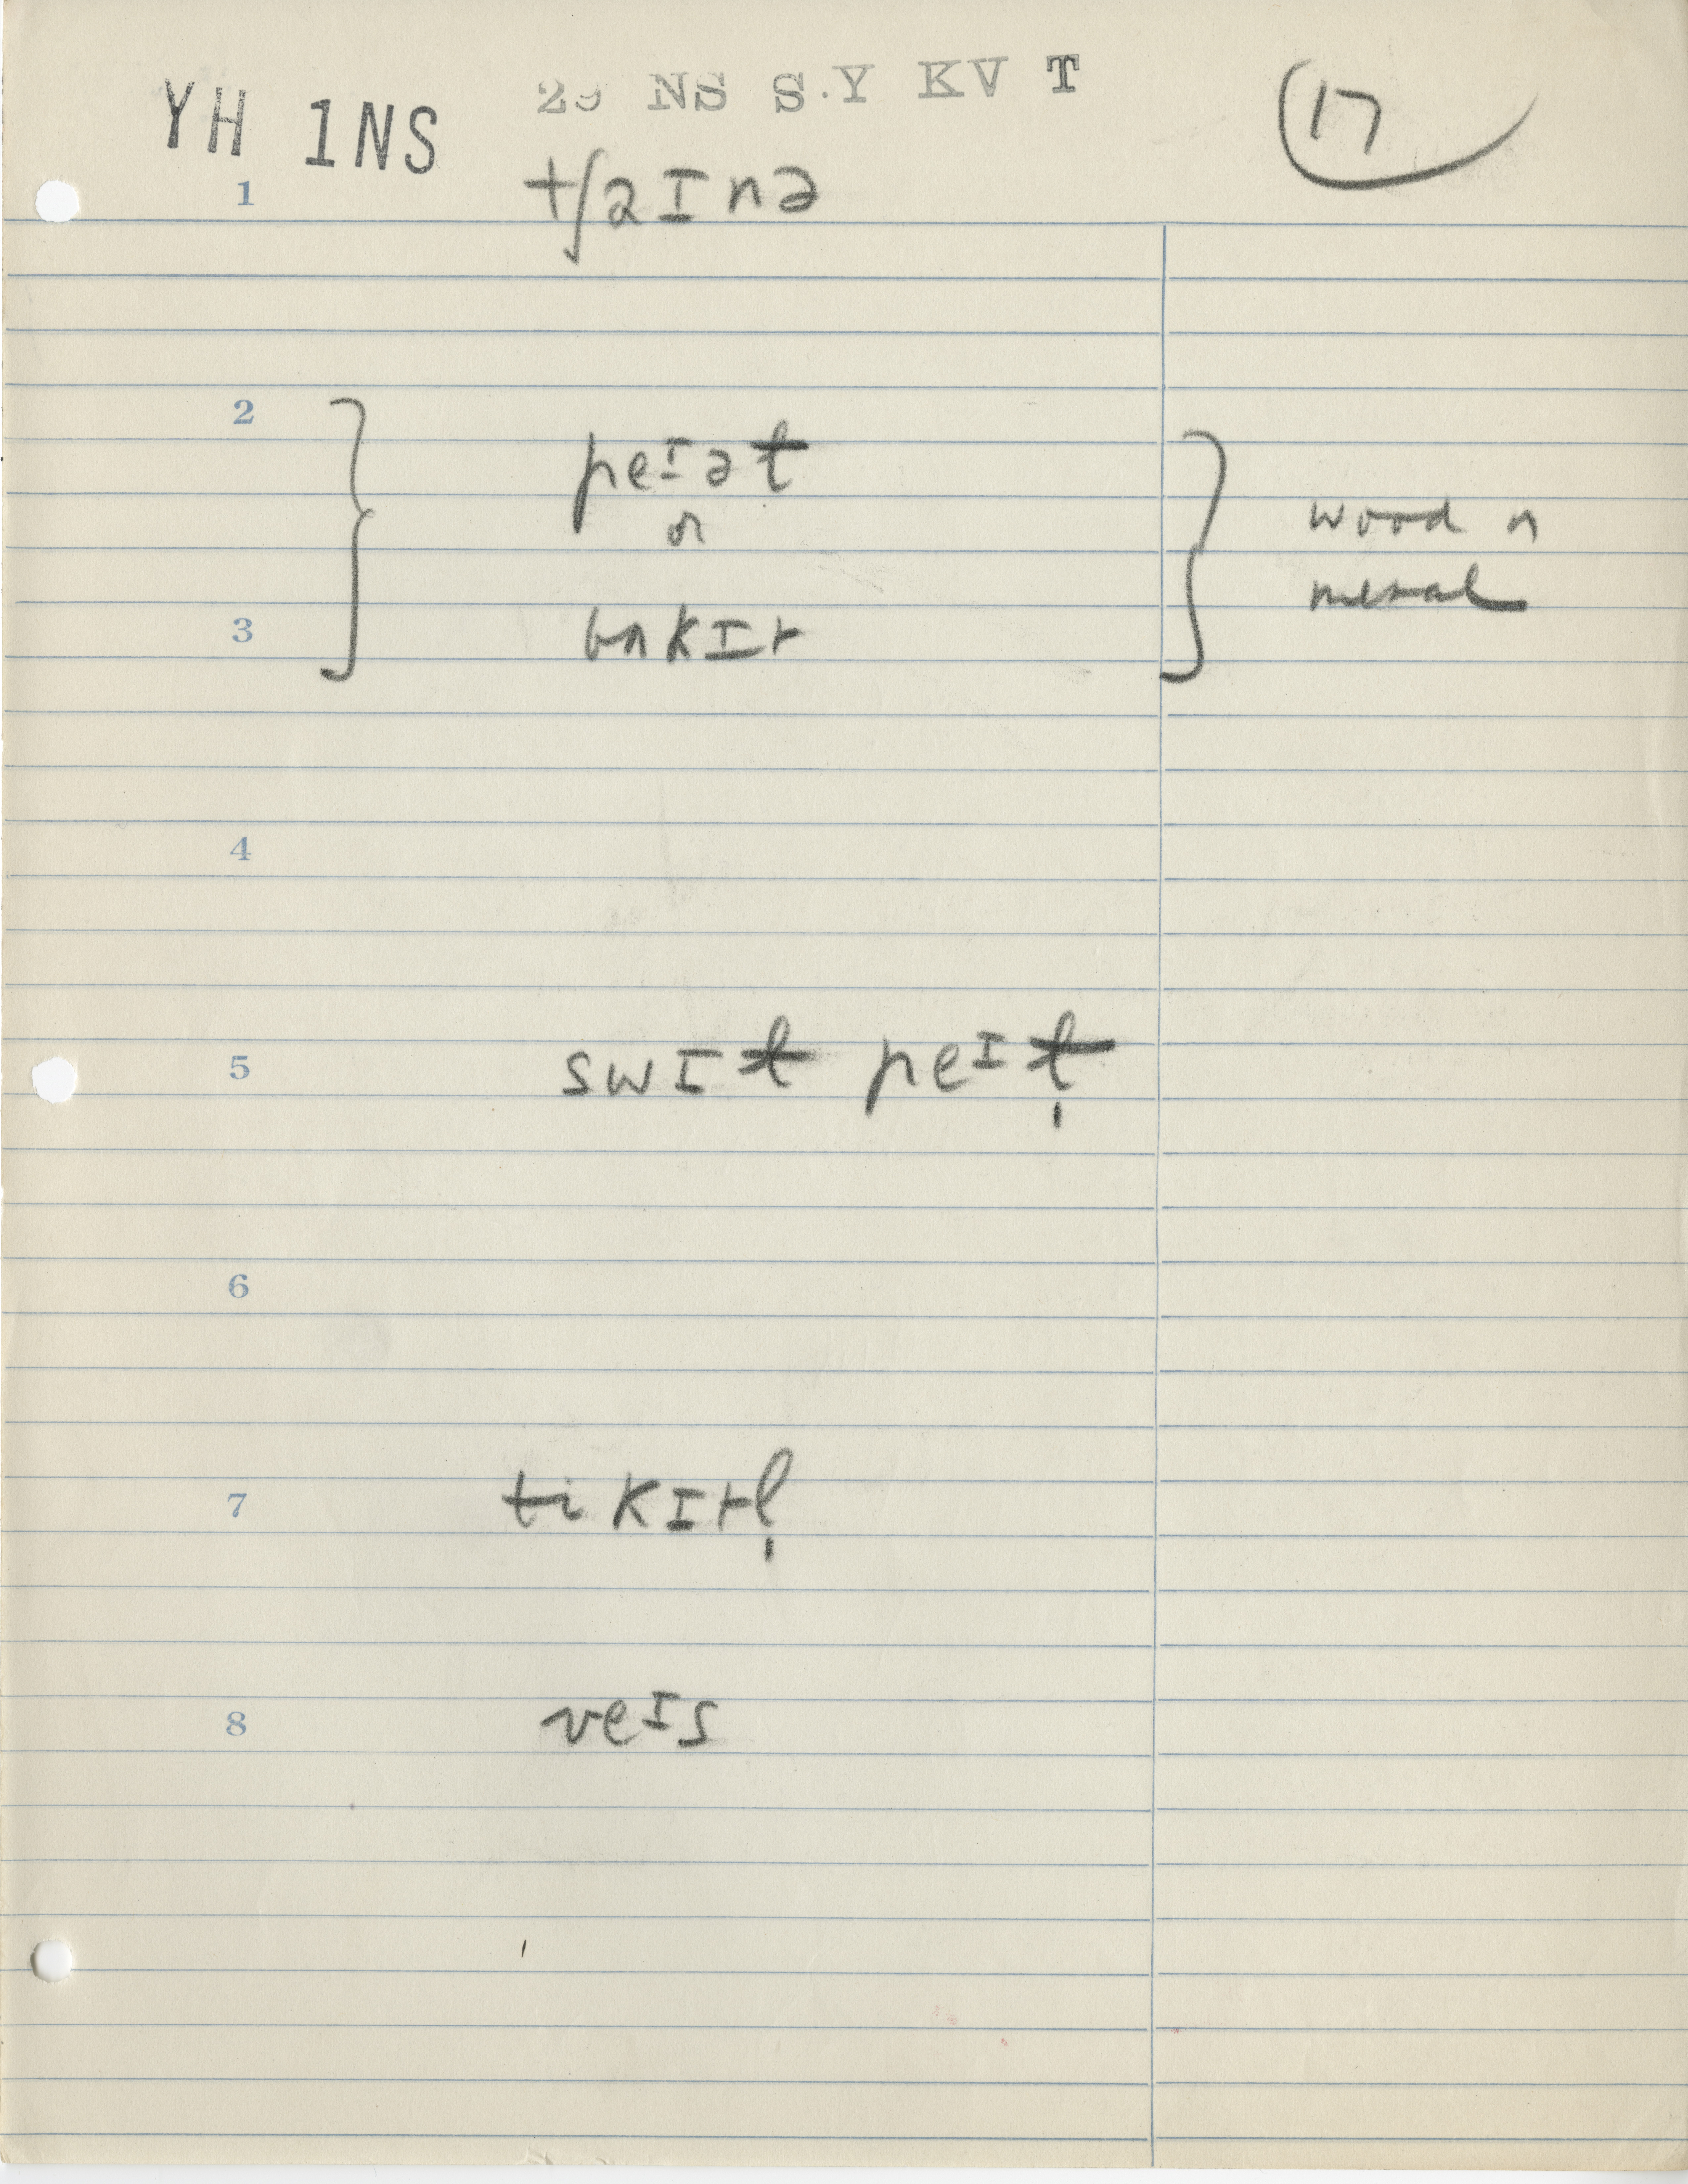 YH 1NS 29 NS S.Y KV T (17)
1 tʃaɪnə
2 peɪət
or
wood or
metal
3 bʌkɪt
4
5 swɪt peɪt̩
6
7 tikɪtl̩
8 veɪs